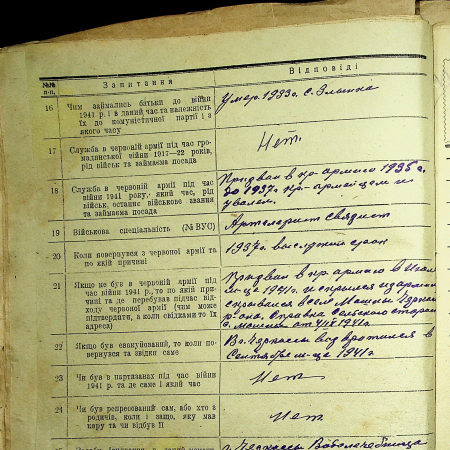 №№ п-п.
Запитання
Відповіді
16
Чим займались батьки до війни
1941 р. і в даний час та належність
їх до комуністичної партії і з
якого часу
Умер. 1933г. с.
17
Служба в червоній армії під час гро-
мадянської війни 1917—22 років,
рід військ та займаєма посада
Нет.
18
Служба в червоній армії під час
війни 1941 року, який час, рід
військ, останнє військове звання
та займаєма посада
Призван в кр. армию 1935 г.
до 1937г. кр-армейцем и
19
Військова спеціальність (№ ВУС)
Артелерист Связист
20
Коли повернувся з червоної армії та
по якій причині
1937г. выслужил срок
21
Якщо не був в червоній армії під
час війни 1941 р., то по якій при-
чині та де перебував підчас від-
ходу червоної армії (чим може
підтвердити, а коли свідками то їх
адреса)
Призван в кр. армию в
м-це 1941г. и
скрывался в селе Мошны
р-она, Справка Сельского
с. Мошны от 1941г.
22
Якщо був евакуйований, то коли по-
вернувся та звідки саме
Черкассы возвратился в
Сентябре м-це 1941г
23
Чи був в партизанах під час війни
1941 р. та де саме і який час
Нет
24
Чи був репресований сам, або хто з
родичів, коли і защо, яку мав
кару та чи відбув її
Нет
г. Черкассы